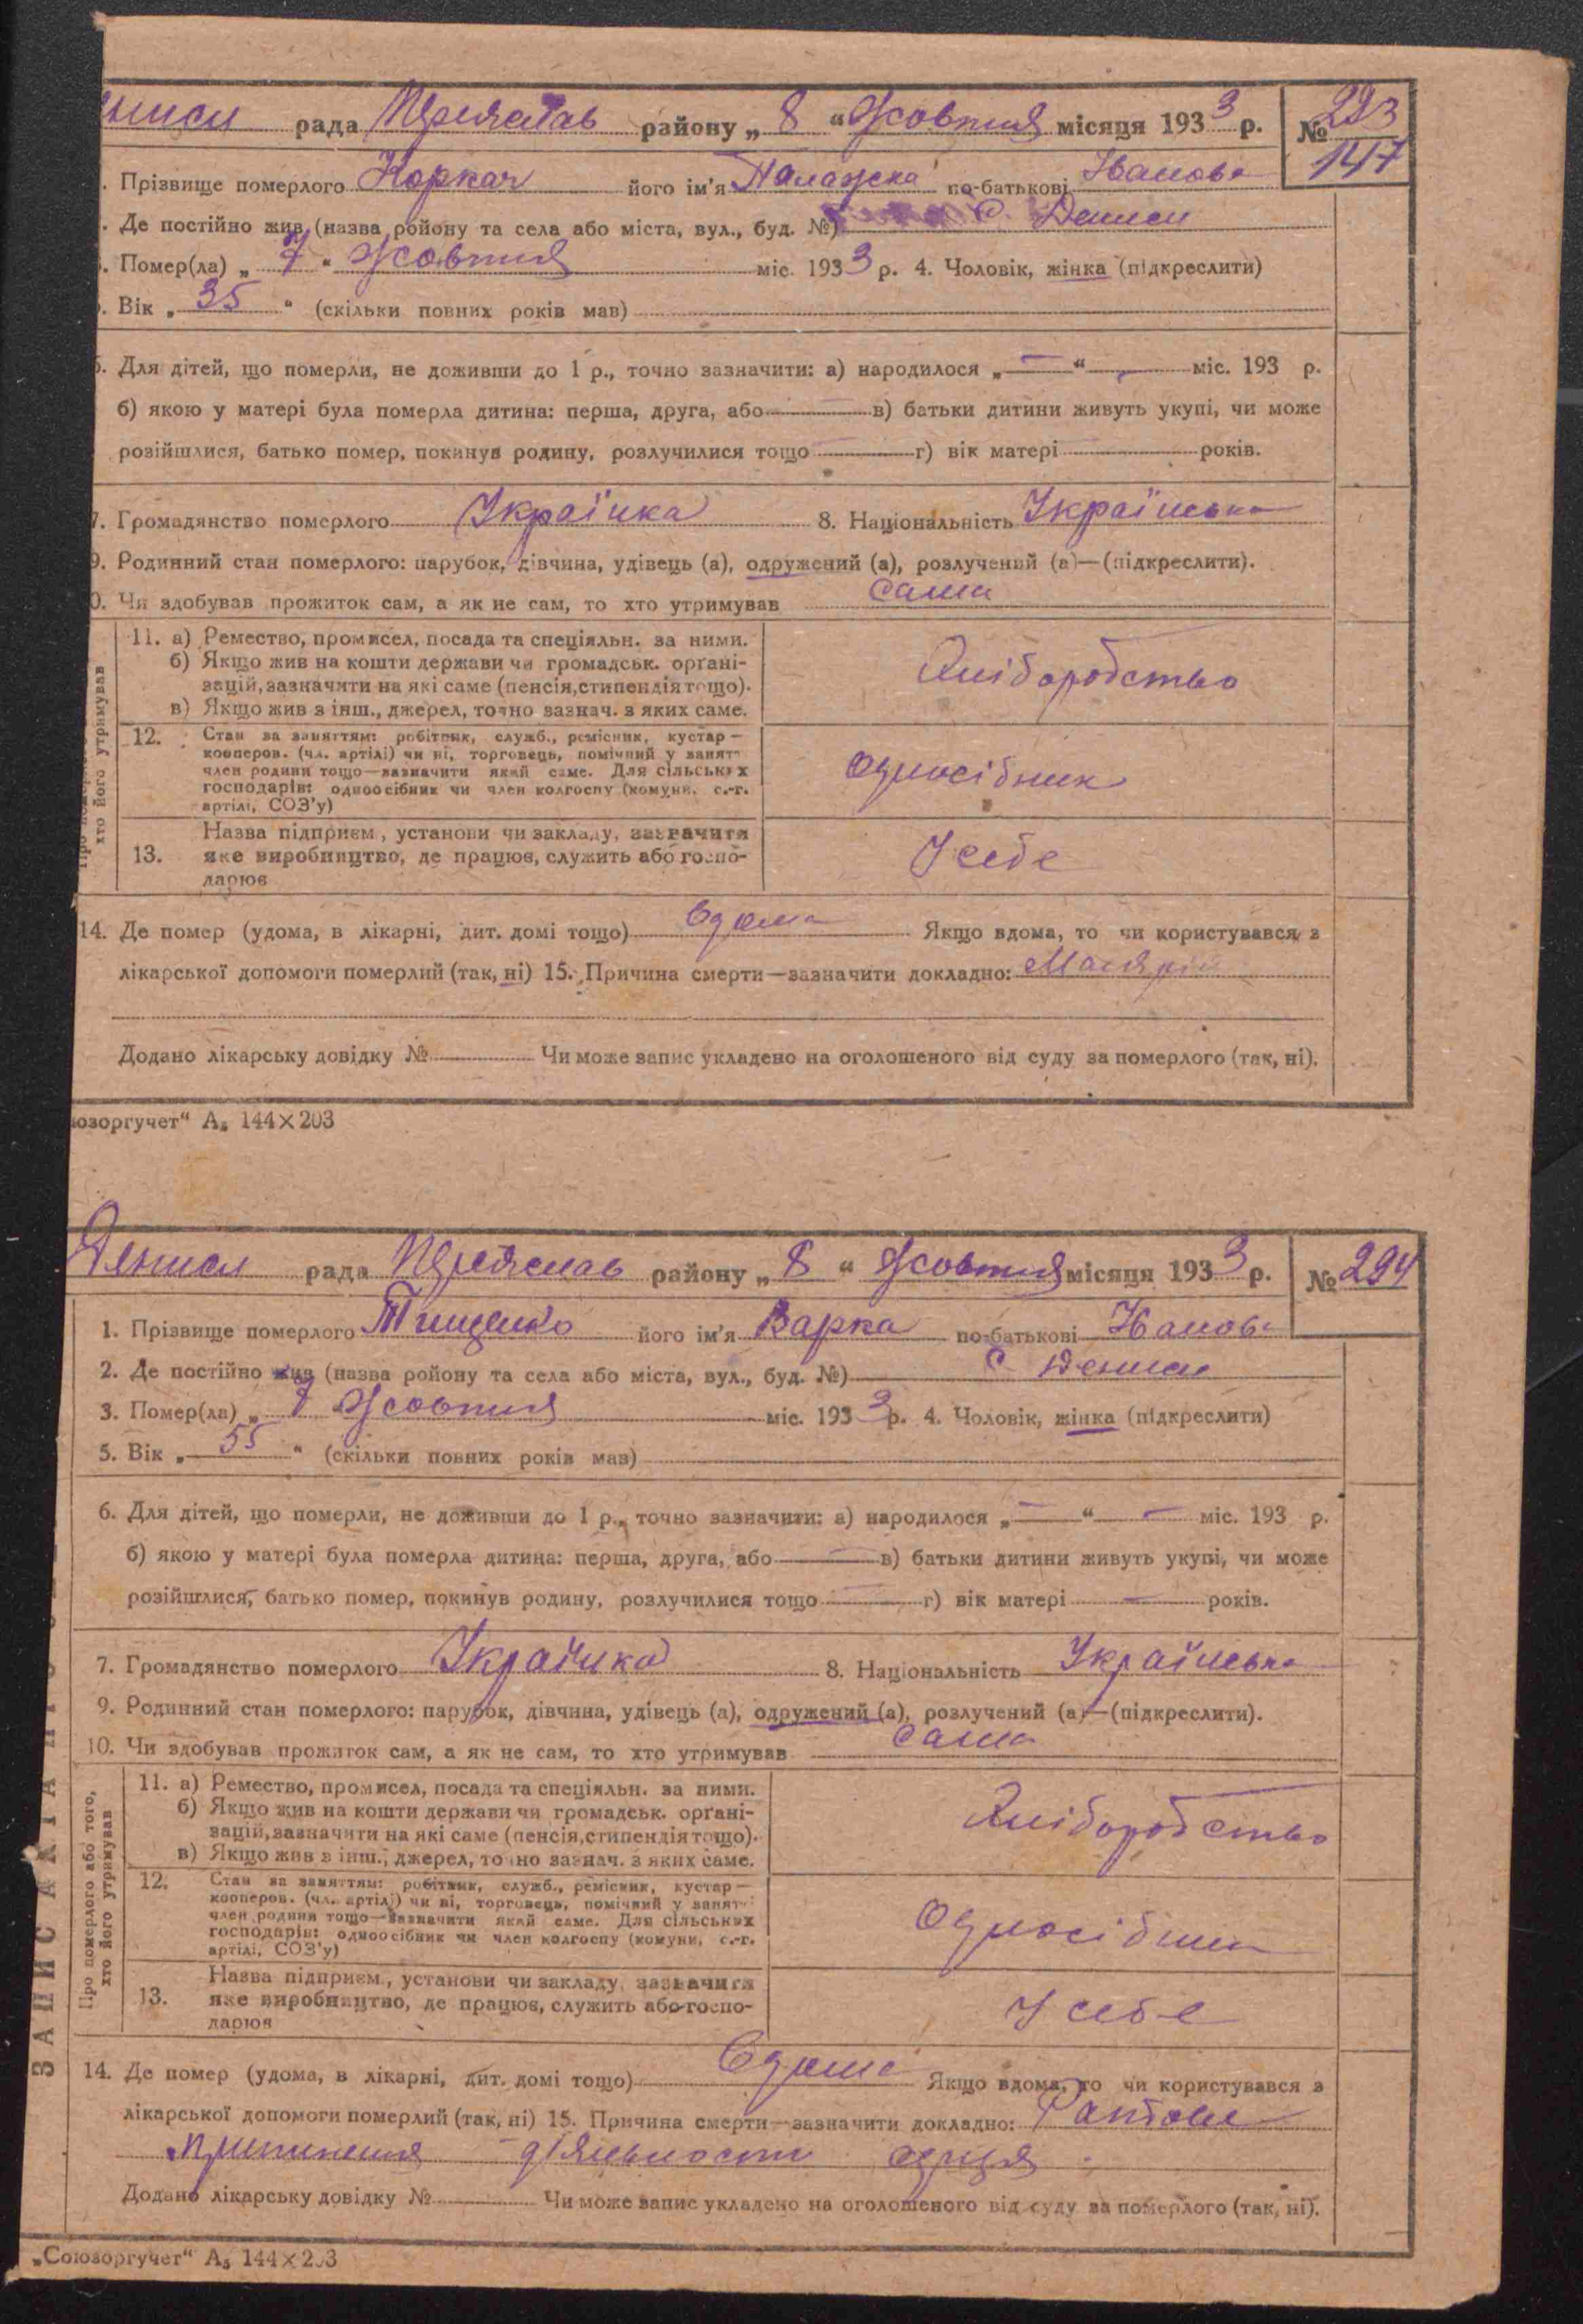 рада Переяслав району „ 8 “ Жовтня місяця 1933 р. № 293
147
Прізвище померлого Коркач його ім'я Палажка по-батькові Іванов.
Де постійно жив (назва ройону та села або міста, вул., буд. №) С. Дениси
Помер(ла) „ 7 “ Жовтня міс. 1933 р. 4. Чоловік, жінка (підкреслити)
Вік „ 35 “ (скільки повних років мав)
Для дітей, що померли, не доживши до 1 р., точно зазначити: а) народилося „ — “ — міс. 193 р.
б) якою у матері була померла дитина: перша, друга, або — в) батьки дитини живуть укупі, чи може
розійшлися, батько помер, покинув родину, розлучилися тощо — г) вік матері років.
7. Громадянство померлого Українка 8. Національність Українська
9. Родинний стан померлого: парубок, дівчина, удівець (а), одружений (а), розлучений (а)—(підкреслити).
0. Чи здобував прожиток сам, а як не сам, то хто утримував сама
хто його утримував
11. а) Ремество, промисел, посада та спеціяльн. за ними.
б) Якщо жив на кошти держави чи громадськ. орґані-
зацій, зазначити на які саме (пенсія, стипендія тощо).
в) Якщо жив з інш., джерел, точно зазнач. з яких саме.
Хліборобство
12. Стан за заняттям: робітник, служб., ремісник, кустар —
кооперов. (чл. артілі) чи ні, торговець, помічний у занятт
член родини тощо—зазначити який саме. Для сільських
господарів: одноосібник чи член колгоспу (комуни, с.-г.
артілі, СОЗ'у)
Односібник
13. Назва підприєм., установи чи закладу, зазначити
яке виробництво, де працює, служить або госпо-
дарює
У себе
14. Де помер (удома, в лікарні, дит. домі тощо) Вдома Якщо вдома, то чи користувався з
лікарської допомоги померлий (так, ні) 15. Причина смерти—зазначити докладно: Малярія
Додано лікарську довідку № Чи може запис укладено на оголошеного від суду за померлого (так, ні).
юзоргучет“ А₅ 144×203
Дениси рада Переяслав району „ 8 “ Жовтня місяця 1933 р. № 294
1. Прізвище померлого Тищенко його ім'я Варка по-батькові Іванов.
2. Де постійно жив (назва ройону та села або міста, вул., буд. №) С Дениси
3. Помер(ла) „ 7 Жовтня міс. 1933 р. 4. Чоловік, жінка (підкреслити)
5. Вік „ 55 “ (скільки повних років мав)
6. Для дітей, що померли, не доживши до 1 р., точно зазначити: а) народилося „ — “ — міс. 193 р.
б) якою у матері була померла дитина: перша, друга, або — в) батьки дитини живуть укупі, чи може
розійшлися, батько помер, покинув родину, розлучилися тощо — г) вік матері — років.
7. Громадянство померлого Українка 8. Національність Українська
9. Родинний стан померлого: парубок, дівчина, удівець (а), одружений (а), розлучений (а)—(підкреслити).
10. Чи здобував прожиток сам, а як не сам, то хто утримував сама
Про померлого або того,
хто його утримував
11. а) Ремество, промисел, посада та спеціяльн. за ними.
б) Якщо жив на кошти держави чи громадськ. орґані-
зацій, зазначити на які саме (пенсія, стипендія тощо).
в) Якщо жив з інш., джерел, точно зазнач. з яких саме.
Хліборобство
12. Стан за заняттям: робітник, служб., ремісник, кустар —
кооперов. (чл. артілі) чи ні, торговець, помічний у занятт
член родини тощо—зазначити який саме. Для сільських
господарів: одноосібник чи член колгоспу (комуни, с.-г.
артілі, СОЗ'у)
Односібник
13. Назва підприєм., установи чи закладу, зазначити
яке виробництво, де працює, служить або госпо-
дарює
У себе
14. Де помер (удома, в лікарні, дит. домі тощо) Вдома Якщо вдома, то чи користувався з
лікарської допомоги померлий (так, ні) 15. Причина смерти—зазначити докладно: Раптове
припинення діяльности серця.
Додано лікарську довідку № Чи може запис укладено на оголошеного від суду за померлого (так, ні).
„Союзоргучет“ А₅ 144×203